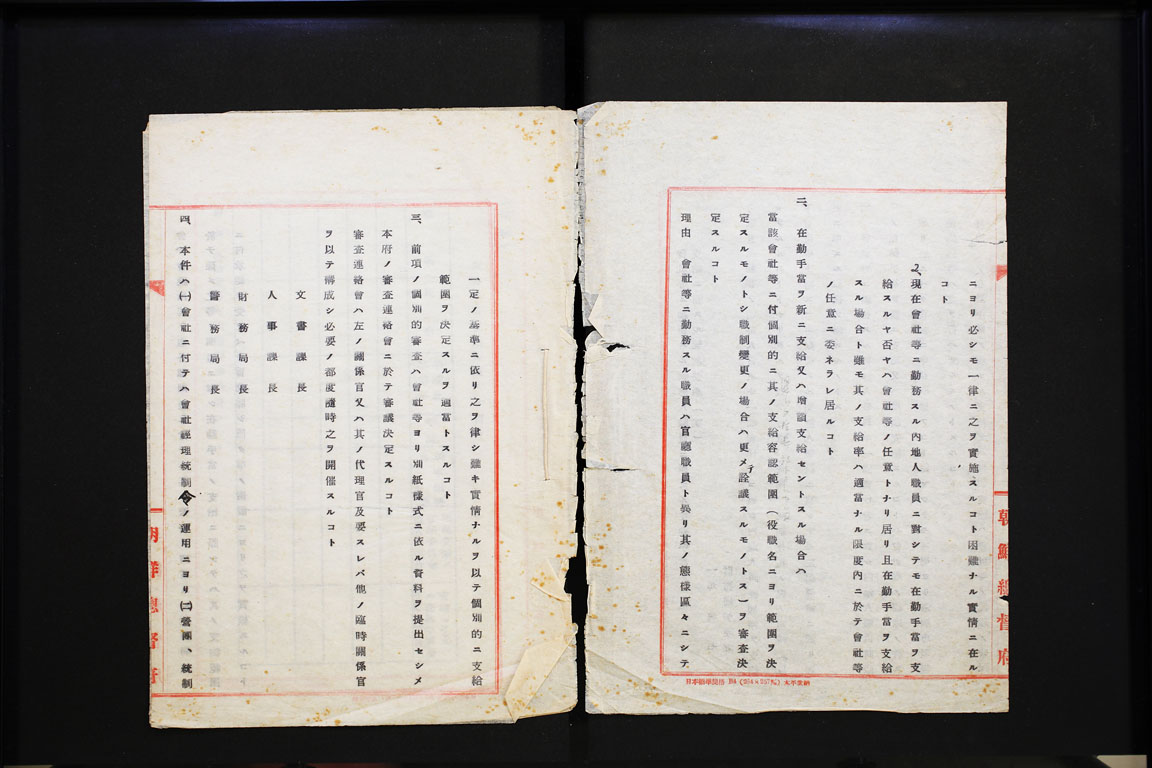 ニヨリ必シモ一律ニ之ヲ實施スルコト困難ナル實情ニ在ル
コト
2、現在會社等ニ勤務スル內地人職員ニ對シテモ在勤手當ヲ支
給スルヤ否ヤハ會社等ノ任意トナリ居リ且在勤手當ヲ支給
スル場合ト雖モ其ノ支給率ハ適當ナル限度內ニ於テ會社等
ノ任意ニ委ネラレ居ルコト
二、在勤手當ヲ新ニ支給又ハ增額支給セントスル場合ハ
當該會社等ニ付個別的ニ其ノ支給容認範圍(役職名ニヨリ範圍ヲ決
定スルモノトシ職制變更ノ場合ハ更メテ詮議スルモノトス)ヲ審査決
定スルコト
理由 會社等ニ勤務スル職員ハ官廳職員ト異リ其ノ態樣區々ニシテ
朝鮮總督府
日本標準規格 B4
一定ノ基準ニ依リ之ヲ律シ難キ實情ナルヲ以テ個別的ニ支給
範圍ヲ決定スルヲ適當トスルコト
三、前項ノ個別的審査ハ會社等ヨリ別紙樣式ニ依ル資料ヲ提出セシメ
本府ノ審査連絡會ニ於テ審議決定スルコト
審査連絡會ハ左ノ關係官又ハ其ノ代理官及要スレバ他ノ臨時關係官
ヲ以テ構成シ必要ノ都度隨時之ヲ開催スルコト
文書課長
人事課長
財務局長
警務局長
四、本件ハ(一)會社ニ付テハ會社經理統制令ノ運用ニヨリ(二)營團、統制
朝鮮總督府